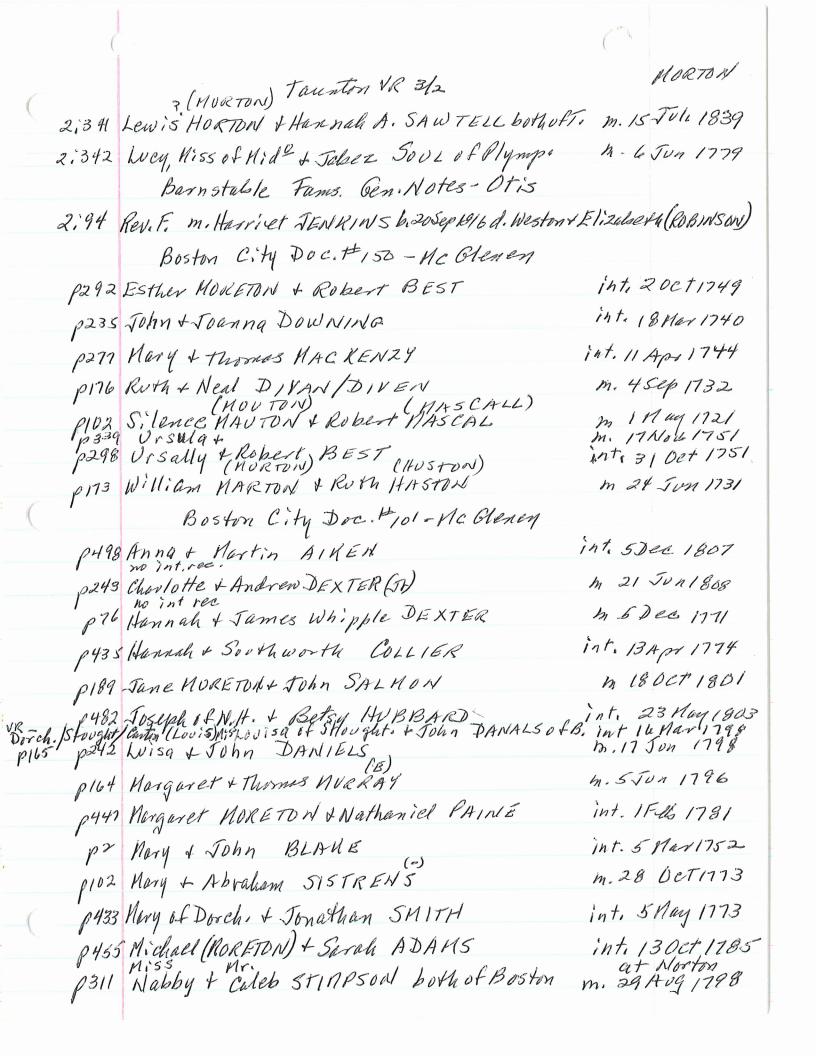 MORTON
Taunton VR 3/2
? (MORTON)
2:341 Lewis HORTON & Hannah A. SAWTELL both of T. m. 15 Jul. 1839
2:342 Lucy, Miss of Mid° & Jabez SOUL of Plymp. m. 6 Jun 1779
Barnstable Fams. Gen. Notes - Otis
2:94 Rev. F. m. Harriet JENKINS b. 20 Sep 1816 d. Weston & Elizabeth (ROBINSON)
Boston City Doc. #150 - McGlenen
p292 Esther MORETON & Robert BEST int. 2 Oct 1749
p235 John & Joanna DOWNING int. 18 Mar 1740
p277 Mary & Thomas MACKENZY int. 11 Apr 1744
p176 Ruth & Neal DIVAN/DIVEN m. 4 Sep 1732
(MOUTON) (MASCALL)
p102 Silence MAUTON & Robert MASCAL m 1 May 1721
p339 Ursula & m. 17 Nov 1751
p298 Ursally & Robert BEST int. 31 Oct 1751
(MORTON) (HUSTON)
p173 William MARTON & Ruth HASTON m 24 Jun 1731
Boston City Doc. #101 - McGlenen
p498 Anna & Martin AIKEN int. 5 Dec 1807
no int. rec.
p243 Charlotte & Andrew DEXTER (Jr) m 21 Jun 1808
no int rec
p76 Hannah & James Whipple DEXTER m 6 Dec 1771
p435 Hannah & Southworth COLLIER int. 13 Apr 1774
p189 Jane MORETON & John SALMON m 18 Oct 1801
p482 Joseph of N.H. & Betsy HUBBARD int. 23 May 1803
VR Dorch./Stought/Canton (Louis) Miss Louisa of Stought. & John DANALS of B. int 16 Mar 1798
p165 p242 Luisa & John DANIELS m. 17 Jun 1798
(B)
p164 Margaret & Thomas MURRAY m. 5 Jun 1796
p447 Margaret MORETON & Nathaniel PAINE int. 1 Feb 1781
p2 Mary & John BLAKE int. 5 Mar 1752
(-)
p102 Mary & Abraham SISTRENS m. 28 Oct 1773
p433 Mary of Dorch. & Jonathan SMITH int. 5 May 1773
p455 Michael (RORETON) & Sarah ADAMS int. 13 Oct 1785
Miss Mr. at Norton
p311 Nabby & Caleb STIMPSON both of Boston m. 29 Aug 1798